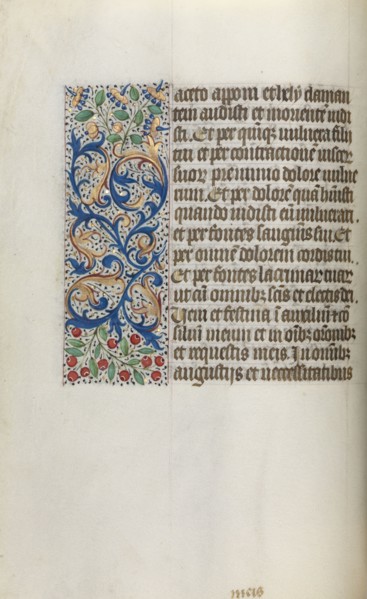 aceto apponi et hely claman
tem audisti et moriente vidi
sti. Et per quinqz vulnera filii
tui et per contractione viscer
suor pre nimio dolore vulne
rum. Et per dolore qua habuisti
quando vidisti eu vulnerari.
et per fontes sanguis sui. Et
per omne dolorem cordis tui.
Et per fontes lacrimar tuar
ut cu omnibz scis et electis dei.
Veni et festina i auxiliu et co
siliu meum et in oibz oronibz
et requestis meis. In omnibz
angustijs et necessitatibus
meis